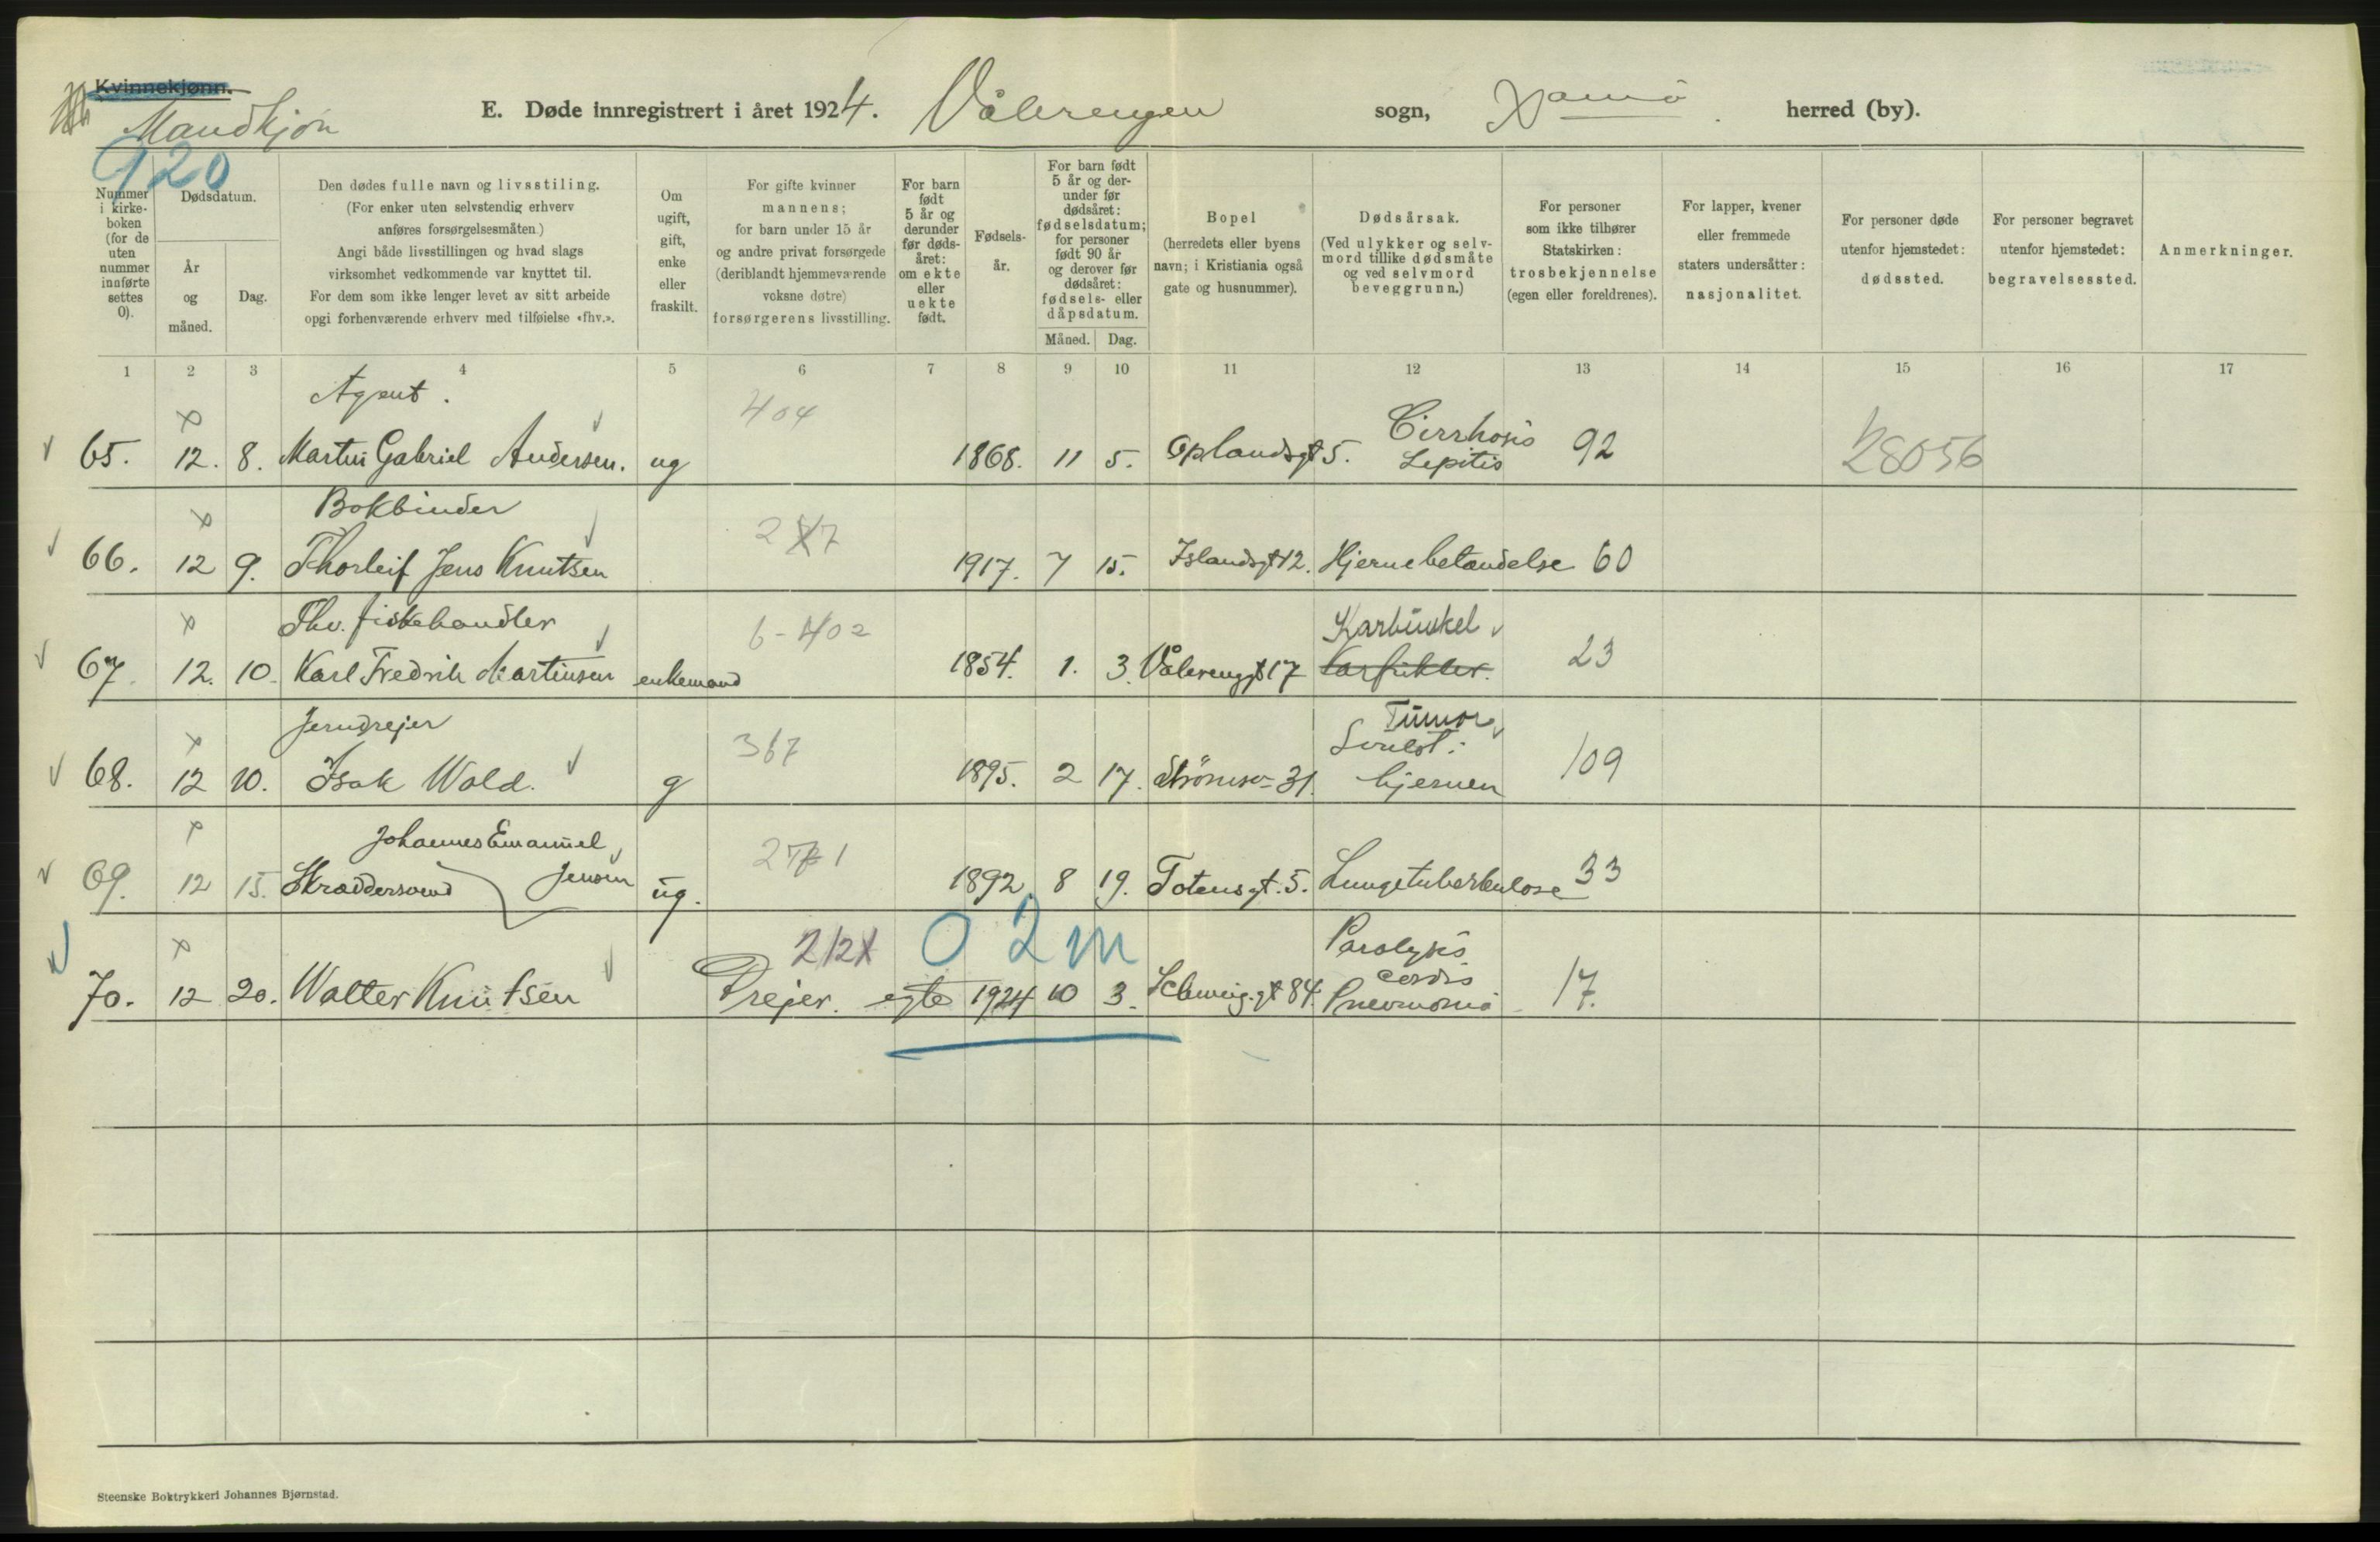 Kvinnekjønn.
Mandkjøn
E. Døde innregistrert i året 1924. Vålerengen sogn, Xania herred (by).
920
Nummer i kirke-boken (for de uten nummer innførte settes 0).
Dødsdatum.
År og måned.
Dag.
Den dødes fulle navn og livsstiling.
(For enker uten selvstendig erhverv
anføres forsørgelsesmåten.)
Angi både livsstillingen og hvad slags
virksomhet vedkommende var knyttet til.
For dem som ikke lenger levet av sitt arbeide
opgi forhenværende erhverv med tilføielse «fhv.».
Om ugift, gift, enke eller fraskilt.
For gifte kvinner
mannens;
for barn under 15 år
og andre privat forsørgede
(deriblandt hjemmeværende
voksne døtre)
forsørgerens livsstilling.
For barn født 5 år og derunder før døds-året: om ekte eller uekte født.
Fødsels-år.
For barn født 5 år og der-under før dødsåret: fødselsdatum; for personer født 90 år og derover før dødsåret: fødsels- eller dåpsdatum.
Måned. Dag.
Bopel
(herredets eller byens
navn; i Kristiania også
gate og husnummer).
Dødsårsak.
(Ved ulykker og selv-
mord tillike dødsmåte
og ved selvmord
beveggrunn.)
For personer
som ikke tilhører
Statskirken:
trosbekjennelse
(egen eller foreldrenes).
For lapper, kvener
eller fremmede
staters undersåtter:
nasjonalitet.
For personer døde
utenfor hjemstedet:
dødssted.
For personer begravet
utenfor hjemstedet:
begravelsessted.
Anmerkninger.
1 2 3 4 5 6 7 8 9 10 11 12 13 14 15 16 17
Agent. 404
65. 12. 8. Martin Gabriel Andersen. ug 1868. 11 5. Oplandsgt 5. Cirrhosis Lepitis 92 28056
Bokbinder
66. 12 9. Thorleif Jens Knutsen 1917. 7 15. Islandsgt 12. Hjernebetændelse 60
Fhv. fiskehandler 6-402 Karbunkel
67. 12. 10. Karl Fredrik Martinsen enkemand 1854. 1. 3. Vålerenggt 17 23
Jerndrejer 367 Tumor
68. 12 10. Isak Wold. g 1895. 2 17. Strömsv. 31. Svulst i hjernen 109
Johannes Emanuel
69. 12 15. Skræddersvend Jensen ug. 1892 8 19. Totensgt. 5. Lungetuberkulose 33
212 0 2 m
70. 12 20. Walter Knutsen Drejer. egte 1924 10 3. Schweig.gt 84. Paralysis cordis Pneumonia 17.
Steenske Boktrykkeri Johannes Bjørnstad.